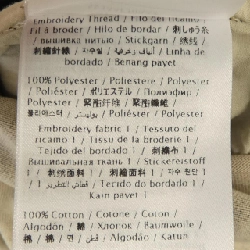 Embroidery Thread / Filo del ricamo /
Fil à broder / Hilo de bordar / 刺しゅう糸
/ Вышивка нитью / Stickgarn / 绣线
/ 刺繡針線 / 자수실 / خيوط / Linha de
bordado / Benang payet
100% Polyester / Poliestere / Polyester /
Poliéster / ポリエステル / Полиэфир /
Polyester / 聚酯纤维 / 聚酯纖維 /
폴리에스터 / / Poliéster / Poliester
Embroidery fabric 1 / Tessuto del
ricamo 1 / Tissu de la broderie 1 /
Tejido del bordado 1 / 刺繍布 1 /
Вышивальная ткань 1 / Stickereistoff
1 / 刺绣面料 1 / 刺繡面料 1 / 자수 원단
1 / / Tejido do bordado 1 /
Kain payet 1
100% Cotton / Cotone / Coton /
Algodón / 綿 / Хлопок / Baumwolle /
棉 / 棉 / 면 / قطن / Algodão / Katun